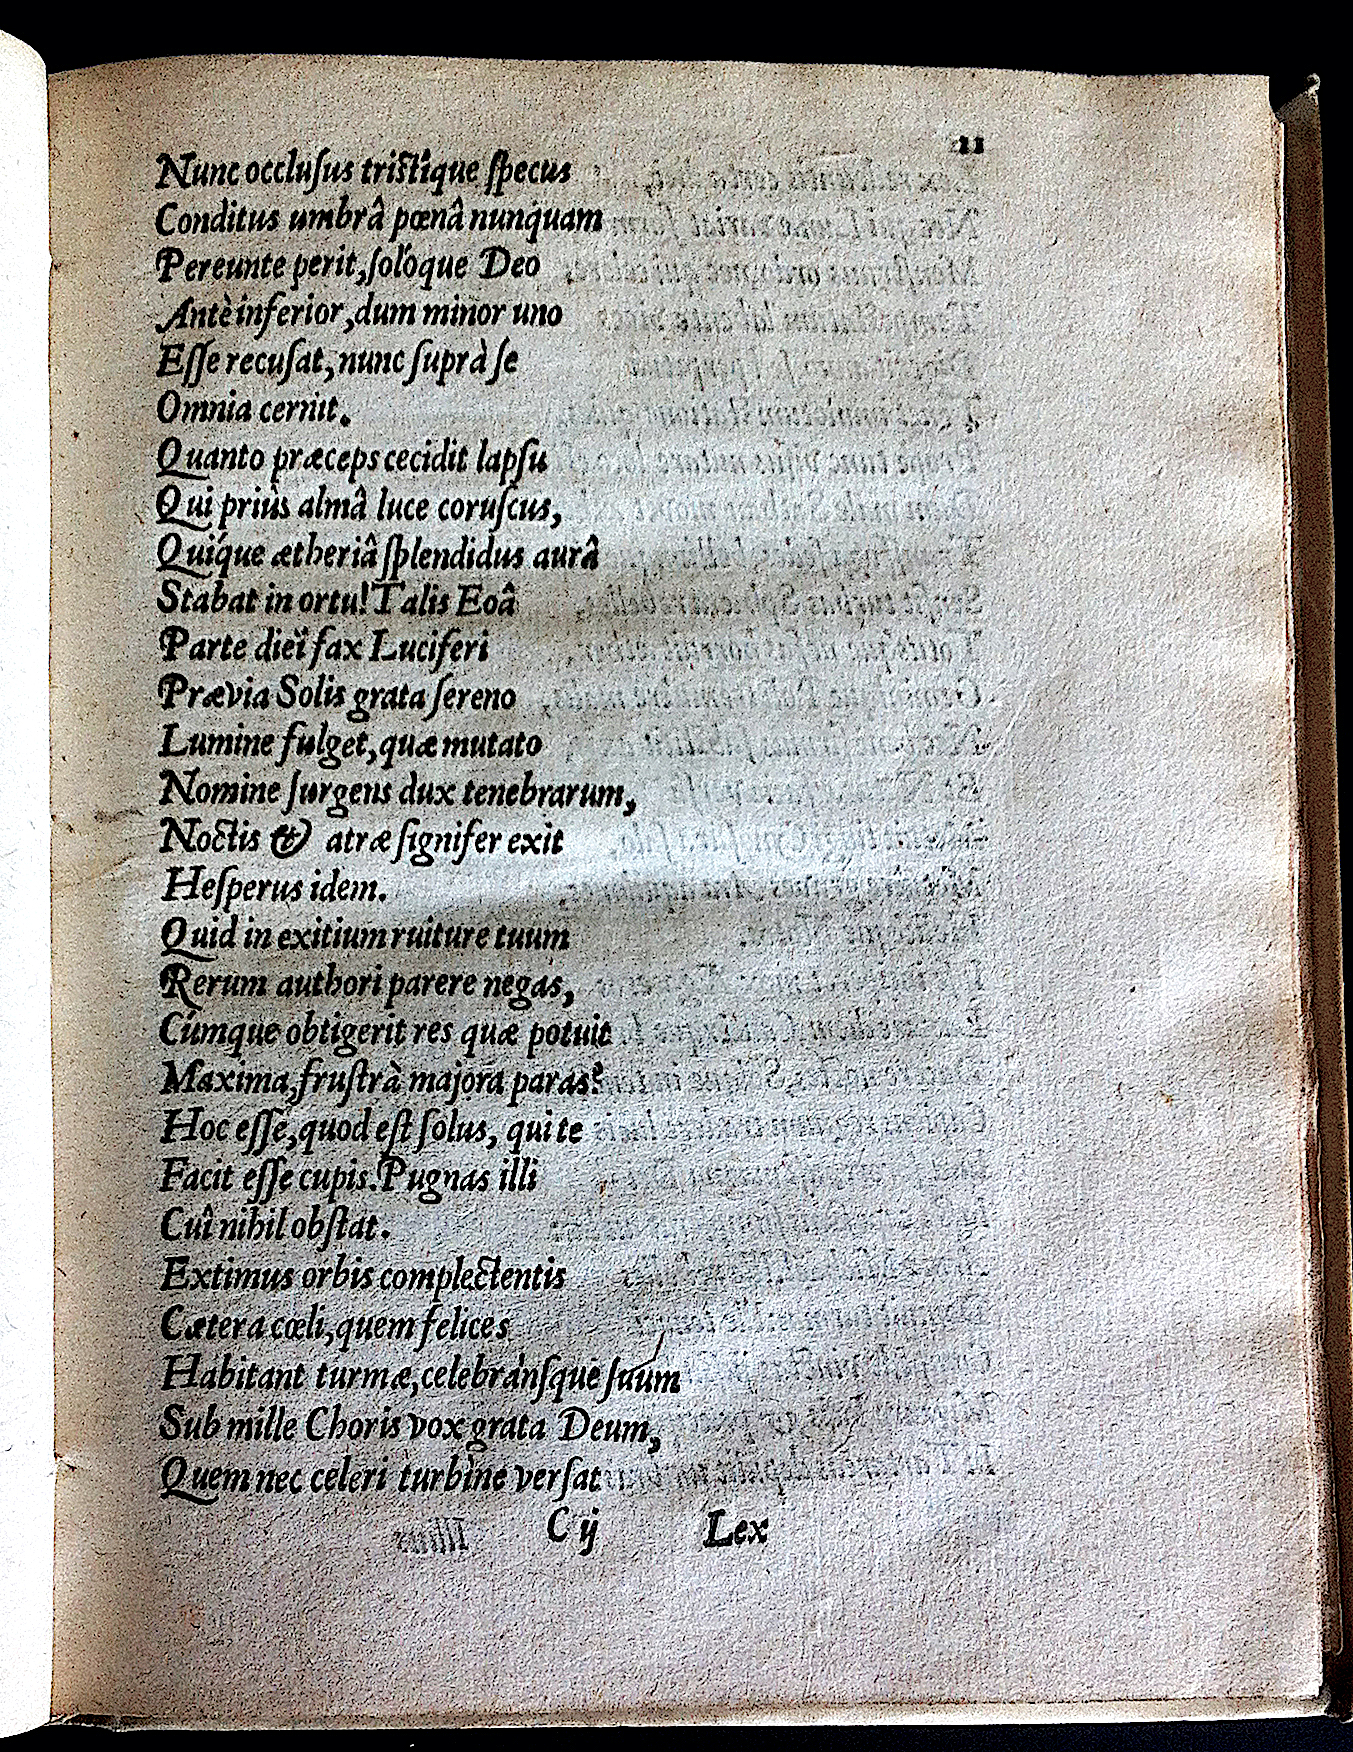 11
Nunc occluſus triſtique ſpecus
Conditus umbrâ pœnâ nunquam
Pereunte perit, ſolóque Deo
Antè inferior, dum minor uno
Eſſe recuſat, nunc ſuprà ſe
Omnia cernit.
Quanto præceps cecidit lapſu
Qui priùs almâ luce coruſcus,
Quíque ætheriâ ſplendidus aurâ
Stabat in ortu! Talis Eoâ
Parte dieî fax Luciferi
Prævia Solis grata ſereno
Lumine fulget, quæ mutato
Nomine ſurgens dux tenebrarum,
Noctis & atræ ſignifer exit
Heſperus idem.
Quid in exitium ruiture tuum
Rerum authori parere negas,
Cúmque obtigerit res quæ potuit
Maxima, fruſtrà majora paras?
Hoc eſſe, quod eſt ſolus, qui te
Facit eſſe cupis. Pugnas illi
Cuî nihil obſtat.
Extimus orbis complectentis
Cætera cœli, quem felices
Habitant turmæ, celebránſque ſuum
Sub mille Choris vox grata Deum,
Quem nec celeri turbine verſat
C ij Lex